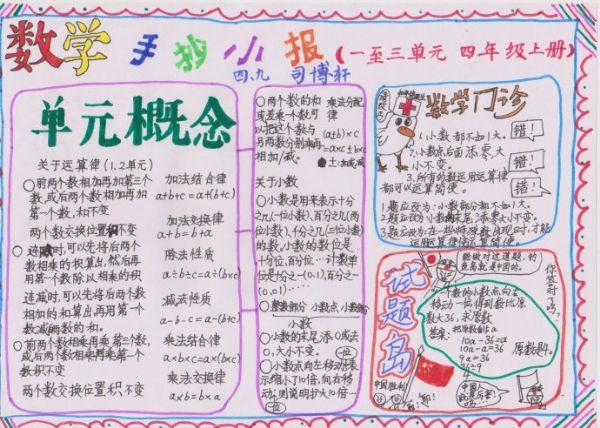 数学手抄小报(一至三单元 四年级上册)
四、九 司博轩
单元概念
关于运算律(1.2单元)
○前两个数相加再加第三个
数,或后两个数相加再加
第一个数,和不变
加法结合律
a+b+c=a+(b+c)
两个数交换位置和不变
加法交换律
a+b=b+a
连减时,可以先将后两个
数相乘的积算出,然后再
用第一个数除以相乘的积
除法性质
a÷b÷c=a÷(b×c)
连减时,可以先将后两个数
相加的和算出再用第一个
数减的数的和。
减法性质
a-b-c=a-(b+c)
○前两个数相乘再乘第三个数,
或后两个数相乘再乘第一个
数积不变
乘法结合律
a×b×c=a×(b×c)
两个数交换位置积不变
乘法交换律
a×b=b×a
○两个数的和
或差乘一个数可
以把这个数与
两数分别相乘再
相加/减。
乘法分配
律
(a±b)×c
=a×c±b×c
±:加或减
关于小数
○小数是用来表示十分
之几(一位小数),百分之几(两
位小数),千分之几(三位小数)
的数。小数的数位是
十分位,百分位…计数单
位是十分之一(0.1),百分之一
(0.01)……
整数部分 小数点 小数部分
小数
○小数的末尾添0或去
0,大小不变。
○小数点向左移动一位表
示缩小了10倍,向右移
动,则说明扩大10倍…
一位
数学门诊
1.小数都不如1大。
错!
2.小数点后面添零大
小不变。
错!
3.所有的数运用运算律
都可以运算简便。
错!
1.题应改为:小数部分和不如1大。
2.题应改为小数的末尾添零大小不变。
3.题应改为:在一些特殊数出现时,才能
运用运算律使运算简便。
试题岛
能做对这道题,钓
鱼岛就是中国的。
你答对了吗,
个数的小数点向右
移动一位得到数比原
数大36,求原数
答案:把原数看作a
10a-a=36
10a-a=36
9a=36
36÷9
=4
原数是4.
中国胜利